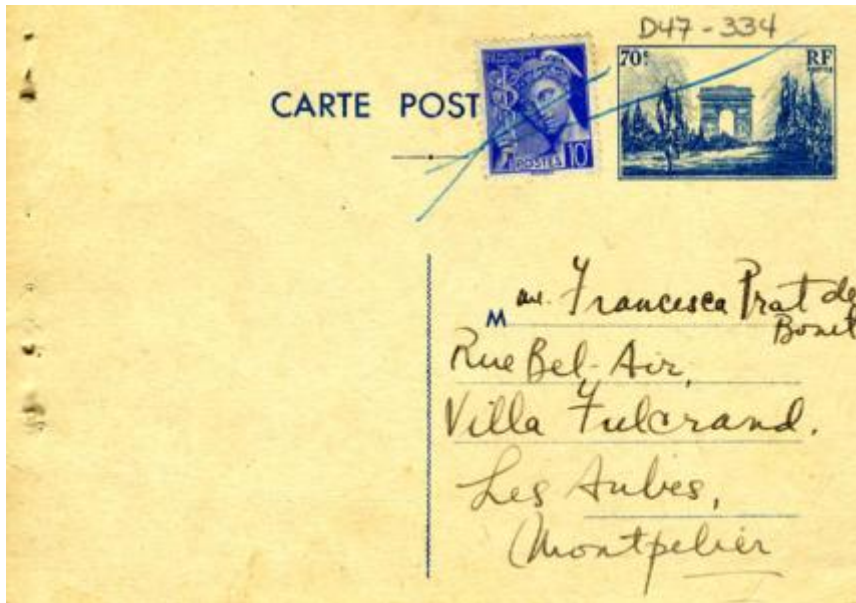 D47-334
70c RF
POSTES
CARTE POST
POSTES 10c
M me. Francesca Prat de
Bonet
Rue Bel-Air,
Villa Fulcrand.
Les Aubes,
Montpelier